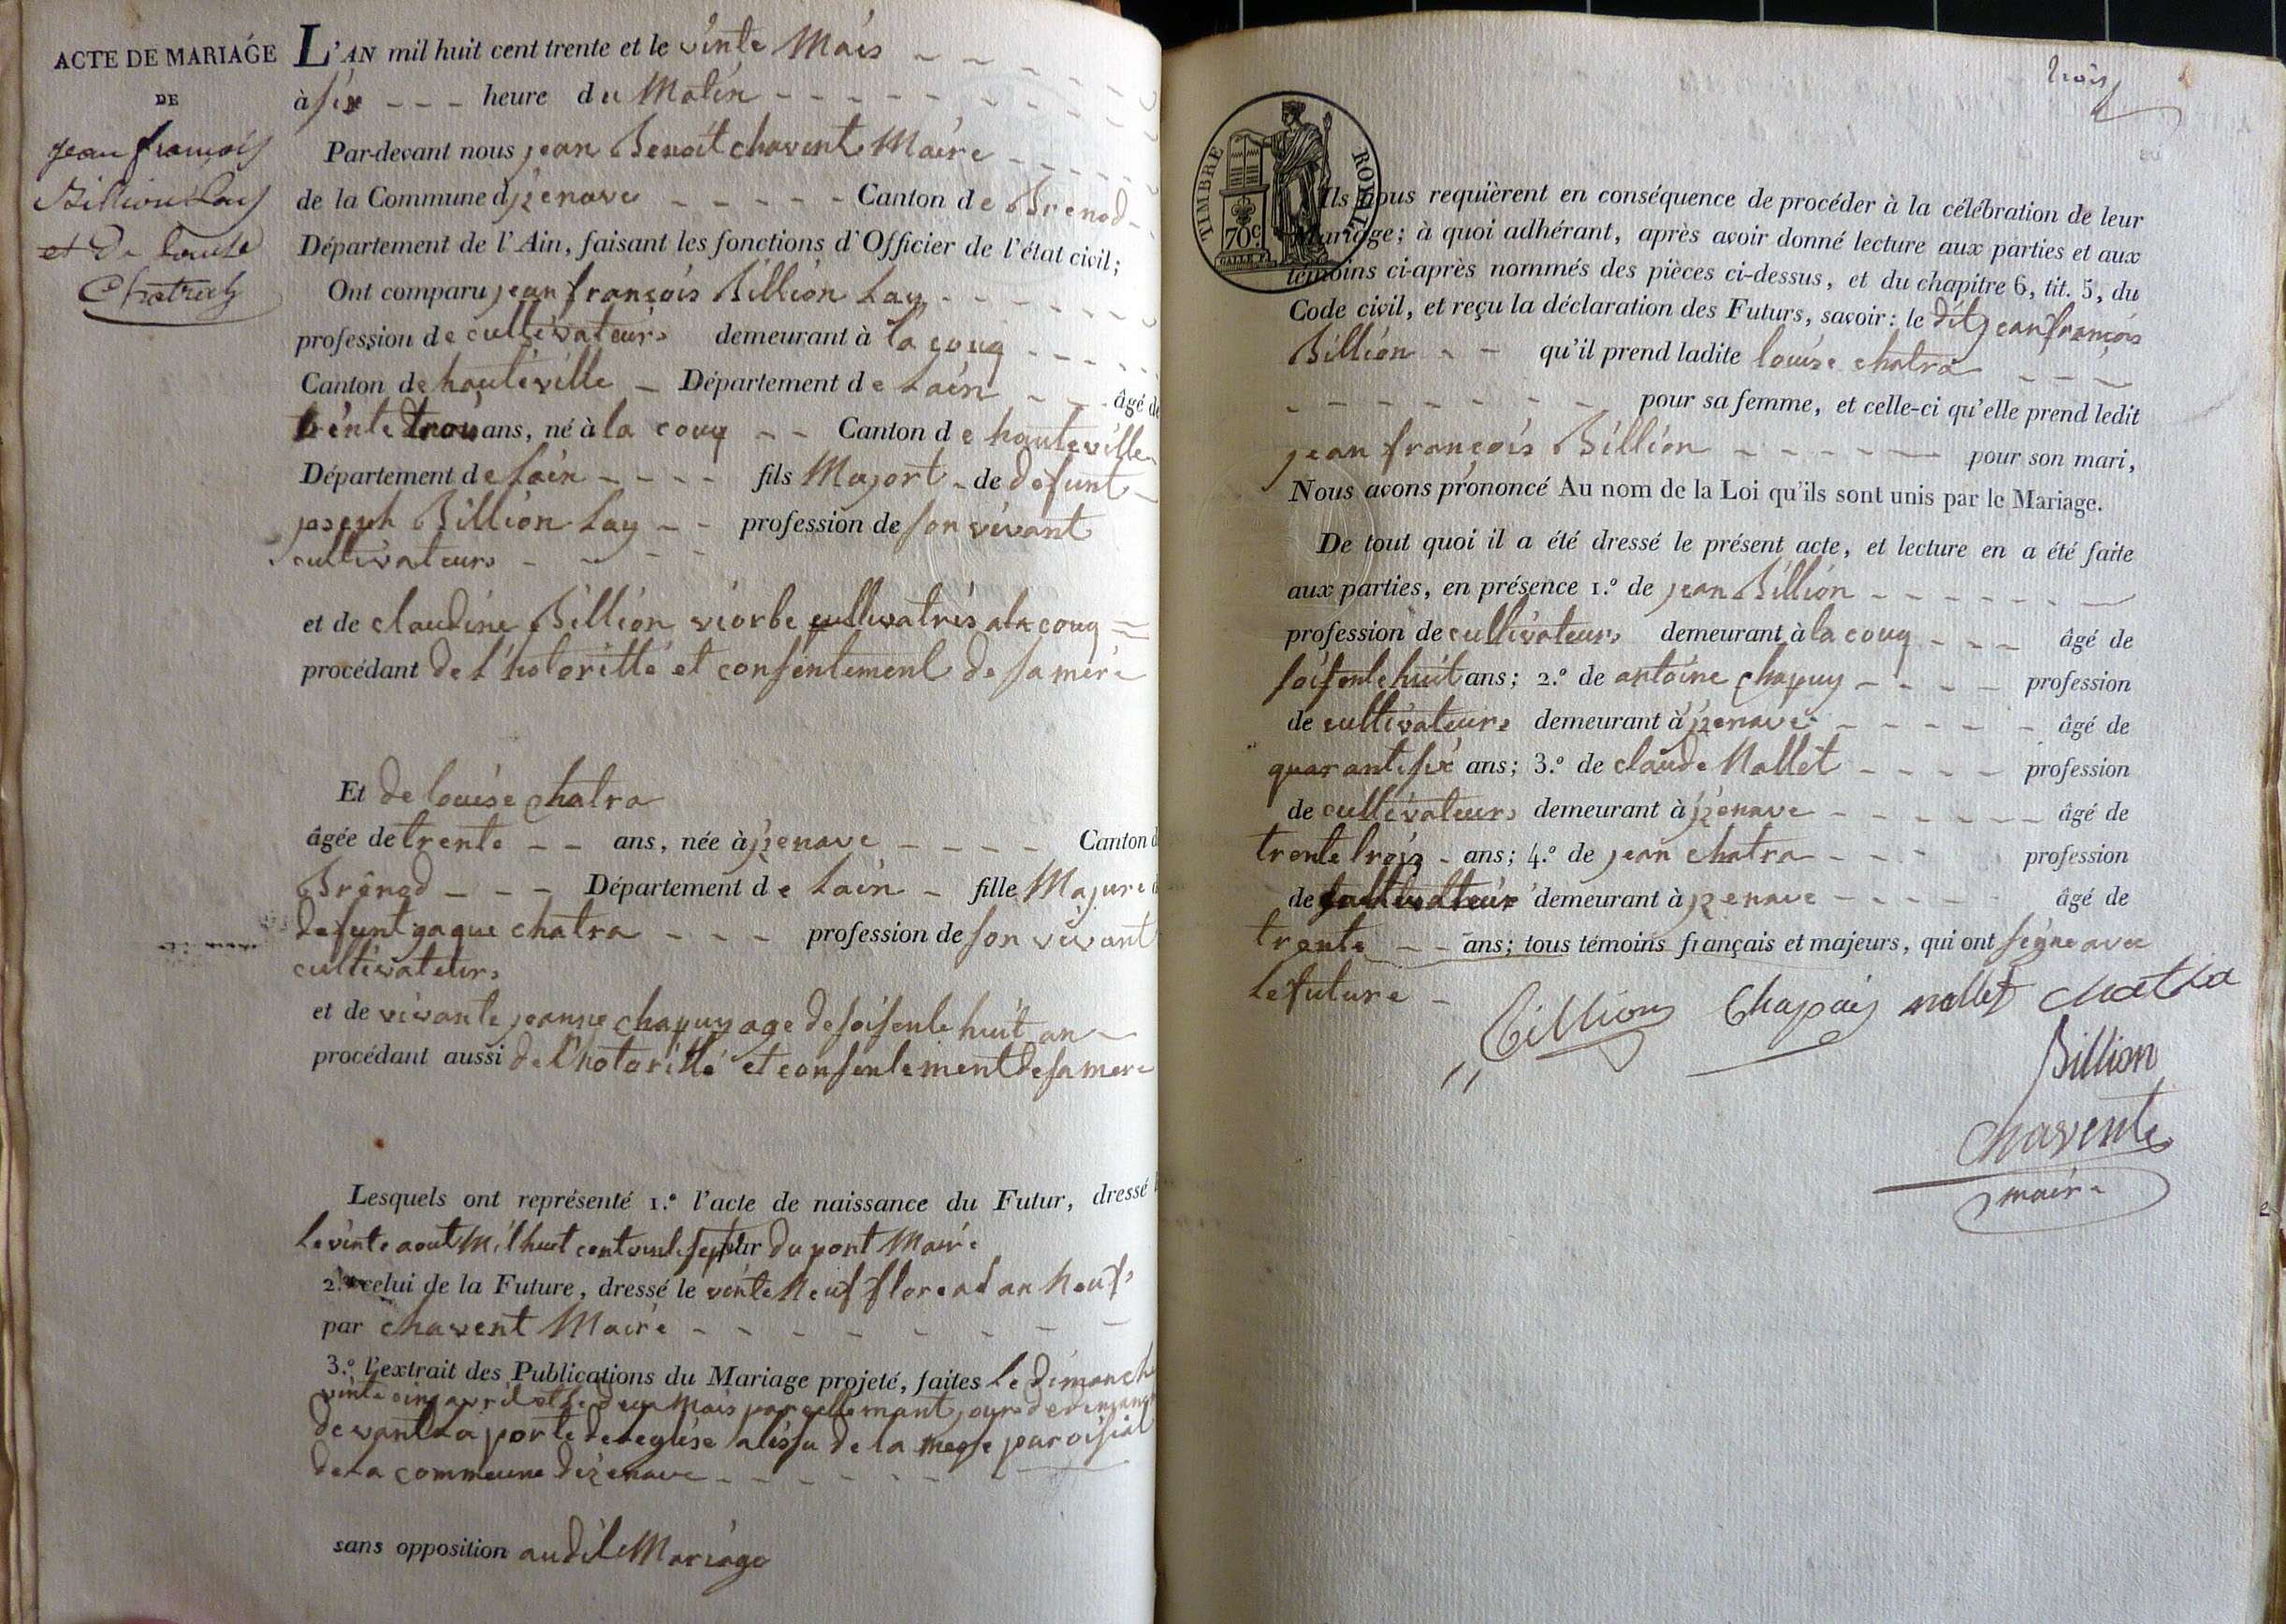 ACTE DE MARIAGE
DE
jean françois
Billion Lay
et de louise
Chatra
L'AN mil huit cent trente et le vinte Mais
à six heure du Matin
Par-devant nous jean Benoit chavent Maire
de la Commune dizenave Canton de Brenod
Département de l'Ain, faisant les fonctions d'Officier de l'état civil;
Ont comparu jean françois Billion Lay
profession de cultivateurs demeurant à la couq
Canton de hauteville Département de Lain âgé de
trente trois ans, né à la couq Canton de hauteville
Département de Lain fils Majort de défunt
joseph Billion Lay profession de son vivant
cultivateurs
et de claudine Billion viorbe cultivatris a la couq
procédant de l'hotoritté et consentement de sa mere
Et de louise chatra
âgée de trente ans, née à izenave Canton d
Brénod Département de Lain fille Majure d
defunt gaque chatra profession de son vivant
cultivateurs
et de vivante jeanne chapuy age de soisente huit an
procédant aussi de l'hotoritté et consentement de sa mere
Lesquels ont représenté 1.º l'acte de naissance du Futur, dressé
le vinte aout Mil huit cent par du pont Maire
2.º celui de la Future, dressé le vinte Neuf floreal an Neuf
par chavent Maire
3.º l'extrait des Publications du Mariage projeté, faites le dimanche
vinte cinq avril et le deux Mais pareillemant jour de dimanche
devant la porte de leglise a lissu de la messe paroisial
de la commeune dizenave
sans opposition audit Mariage
trois
TIMBRE ROYAL
70 c.
Ils nous requièrent en conséquence de procéder à la célébration de leur
Mariage; à quoi adhérant, après avoir donné lecture aux parties et aux
témoins ci-après nommés des pièces ci-dessus, et du chapitre 6, tit. 5, du
Code civil, et reçu la déclaration des Futurs, savoir: le dit jean françois
Billion qu'il prend ladite louise chatra
pour sa femme, et celle-ci qu'elle prend ledit
jean françois Billion pour son mari,
Nous avons prononcé Au nom de la Loi qu'ils sont unis par le Mariage.
De tout quoi il a été dressé le présent acte, et lecture en a été faite
aux parties, en présence 1.º de jean Billion
profession de cultivateurs demeurant à la couq âgé de
soisente huit ans; 2.º de antoine chapuy profession
de cultivateurs demeurant à izenave âgé de
quarante six ans; 3.º de claude Nallet profession
de cultivateurs demeurant à izenave âgé de
trente trois ans; 4.º de jean chatra profession
de cultivateur demeurant à izenave âgé de
trente ans; tous témoins français et majeurs, qui ont signe avec
le future
Billion Chapuis nallet chatra
Billion
Chavent
maire